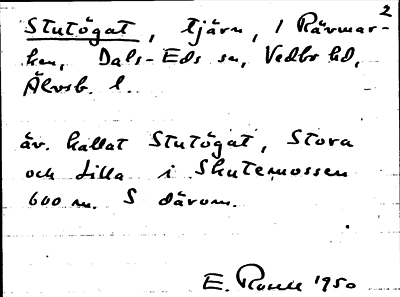 2
Stutögat, tjärn, i Rävmar-
ken, Dals-Eds sn, Vedbo hd,
Älvsb. l.
äv. kallat Stutögat, Stora
och Lilla i Skutemossen
600 m. S därom.
E. Rosell 1950